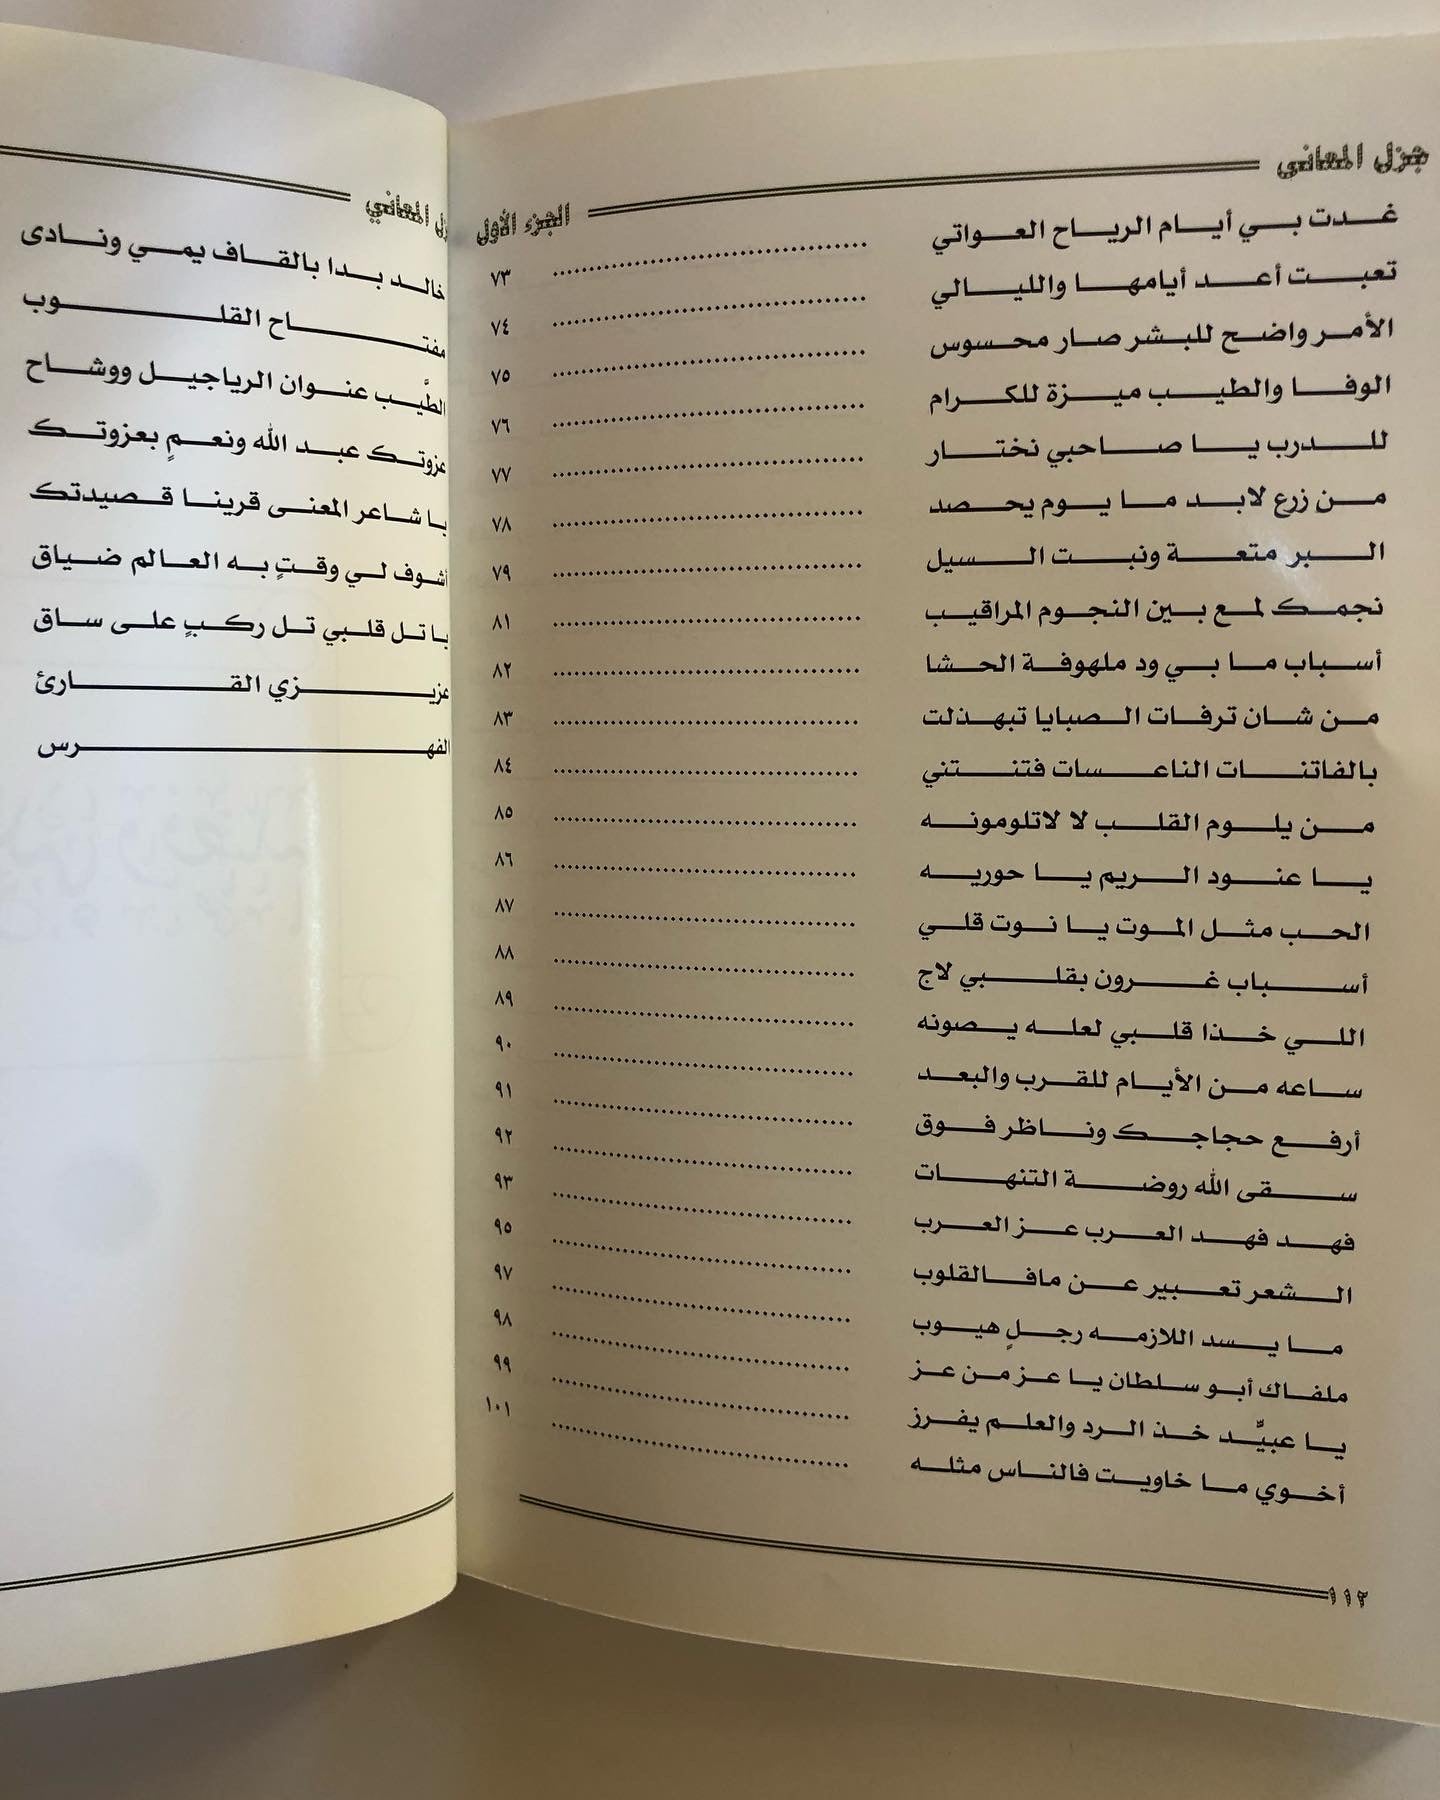 جزل المعاني الجزء الأول
غدت بي أيام الرياح العواتي ٧٣
تعبت أعد أيامها والليالي ٧٤
الأمر واضح للبشر صار محسوس ٧٥
الوفا والطيب ميزة للكرام ٧٦
للدرب يا صاحبي نختار ٧٧
من زرع لابد ما يوم يحصد ٧٨
البر متعة ونبت السيل ٧٩
نجمك لمع بين النجوم المراقيب ٨١
أسباب ما بي ود ملهوفة الحشا ٨٢
من شان ترفات الصبايا تبهذلت ٨٣
بالفاتنات الناعسات فتنتني ٨٤
من يلوم القلب لا لاتلومونه ٨٥
يا عنود الريم يا حوريه ٨٦
الحب مثل الموت يا نوت قلي ٨٧
أسباب غرون بقلبي لاج ٨٨
اللي خذا قلبي لعله يصونه ٨٩
ساعه من الأيام للقرب والبعد ٩٠
أرفع حجاجك وناظر فوق ٩١
سقى الله روضة التنهات ٩٢
فهد فهد العرب عز العرب ٩٣
الشعر تعبير عن مافالقلوب ٩٥
ما يسد اللازمه رجلٍ هيوب ٩٧
ملفاك أبو سلطان يا عز من عز ٩٨
يا عبيِّد خذ الرد والعلم يفرز ٩٩
أخوي ما خاويت فالناس مثله ١٠١
١١٢
المعاني
خالد بدا بالقاف يمي ونادى
مفتاح القلوب
الطيَّب عنوان الرياجيل ووشاح
عزوتك عبد الله ونعمٍ بعزوتك
يا شاعر المعنى قرينا قصيدتك
أشوف لي وقتٍ به العالم ضياق
يا تل قلبي تل ركبٍ على ساق
عزيزي القارئ
الفهرس